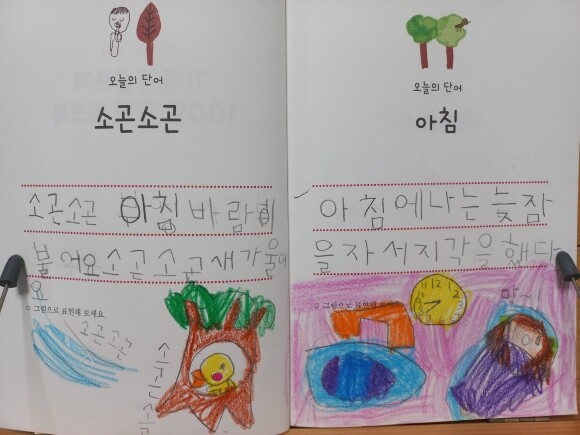 오늘의 단어
소곤소곤
소곤소곤 아침 바람이
불어요 소곤소곤 새가 울어
요
그림으로 표현해 보세요.
소곤소곤
소곤소곤
오늘의 단어
아침
아침에 나는 늦잠
을 자서 지각을 했다
그림으로 표현해 보세요.
11 12